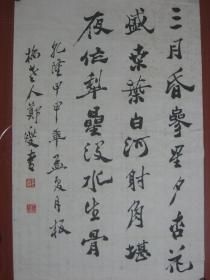 三月昏參星夕杏花
盛桑葉白河射角堪
夜作犁星没水生骨
乾隆甲申年孟夏月板
橋老人鄭燮書